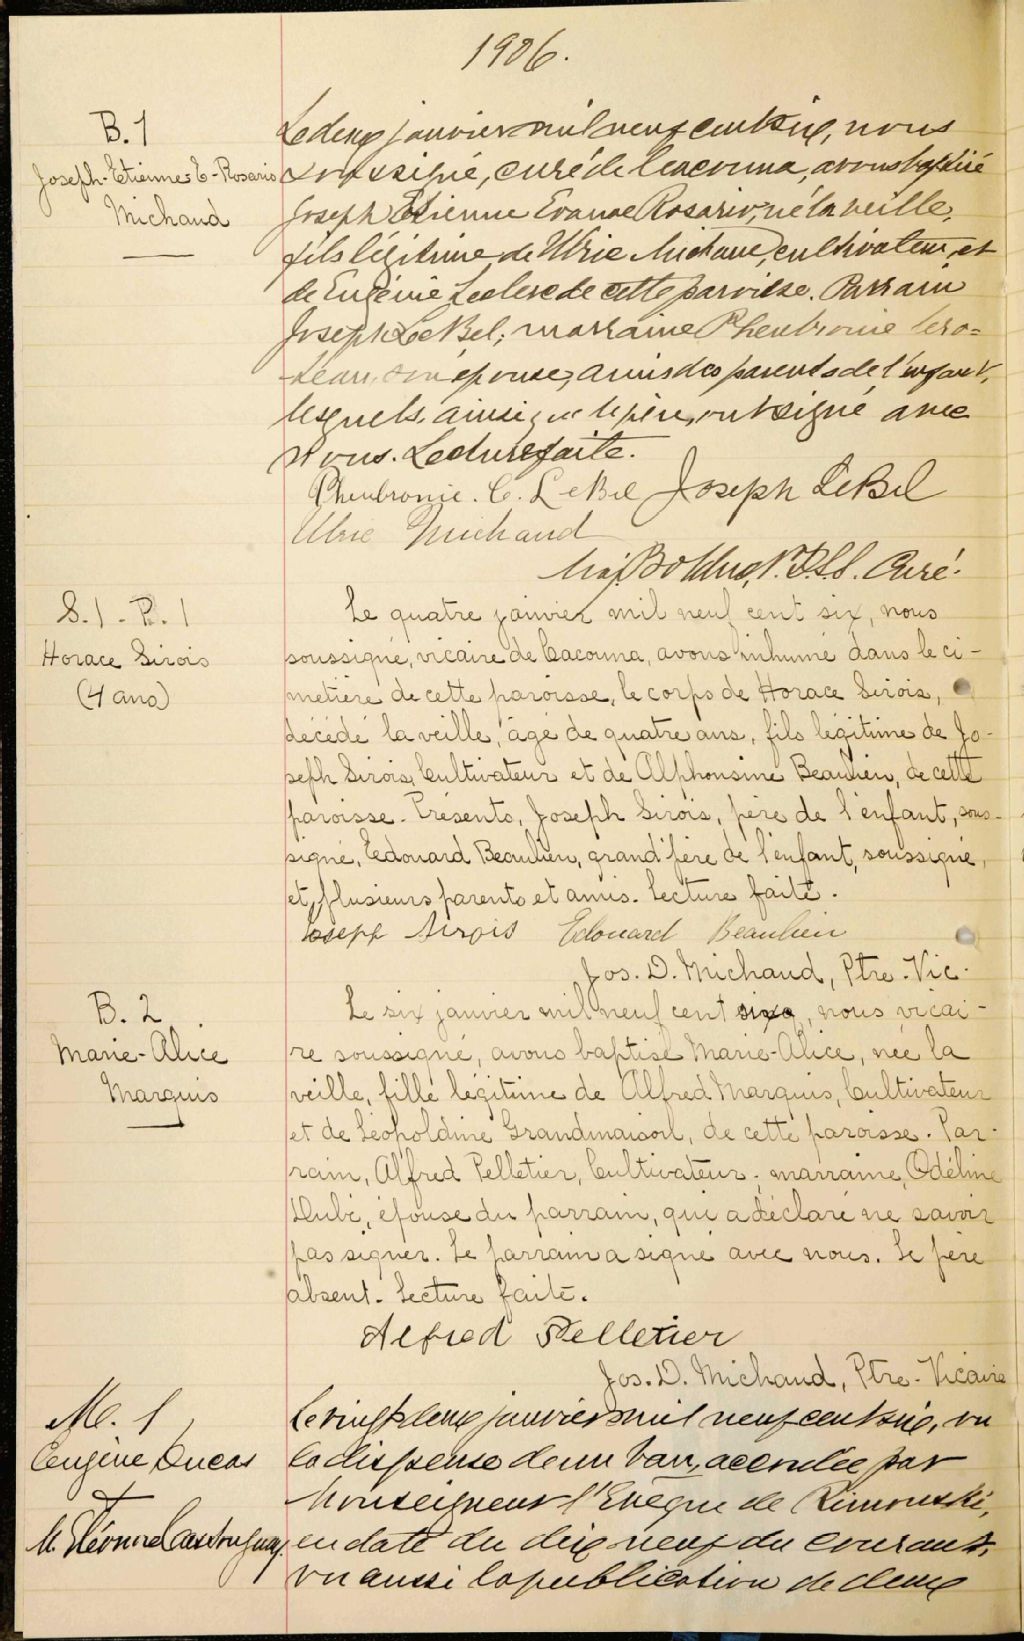 1906.
B. 1
Joseph-Etienne-E-Rosario
Michaud
Le deux janvier mil neuf cent six, nous
soussigné, curé de Cacouna, avons baptisé
Joseph Etienne Evance Rosario, né la veille,
fils légitime de Ulric Michaud, cultivateur, et
de Eugénie Leclerc de cette paroisse. Parrain
Joseph LeBel; marraine Pheubronie
son épouse, amis des parents de l'enfant,
lesquels, ainsi que le père, ont signé avec
nous. Lecture faite.
Pheubronie. C. LeBel Joseph LeBel
Ulric Michaud
Curé.
S. 1 - P. 1
Horace Sirois
(4 ans)
Le quatre janvier mil neuf cent six, nous
soussigné, vicaire de Cacouna, avons inhumé dans le ci-
metière de cette paroisse, le corps de Horace Sirois,
décédé la veille, âgé de quatre ans, fils légitime de Jo-
seph Sirois, Cultivateur et de Alphonsine Beaulieu, de cette
paroisse. Présents, Joseph Sirois, père de l'enfant, sous-
signé, Edouard Beaulieu, grand'père de l'enfant, soussigné,
et plusieurs parents et amis. Lecture faite.
Joseph Sirois Edouard Beaulieu
Jos. D. Michaud, Ptre. Vic.
B. 2
Marie-Alice
Marquis
Le six janvier mil neuf cent six, nous vicai-
re soussigné, avons baptisé Marie-Alice, née la
veille, fille légitime de Alfred Marquis, Cultivateur
et de Léopoldine Grandmaison, de cette paroisse. Par-
rain, Alfred Pelletier, Cultivateur; marraine, Odéline
Dubé, épouse du parrain, qui a déclaré ne savoir
pas signer. Le parrain a signé avec nous. Le père
absent. Lecture faite.
Alfred Pelletier
Jos. D. Michaud, Ptre-Vicaire
M. 1
Eugène Lucas
&
M. Eléonore Castonguay
Le vingt deux janvier mil neuf cent six, vu
la dispense de un ban, accordée par
Monseigneur l'Evêque de Rimouski,
en date du dix neuf du courant,
vu aussi la publication de deux